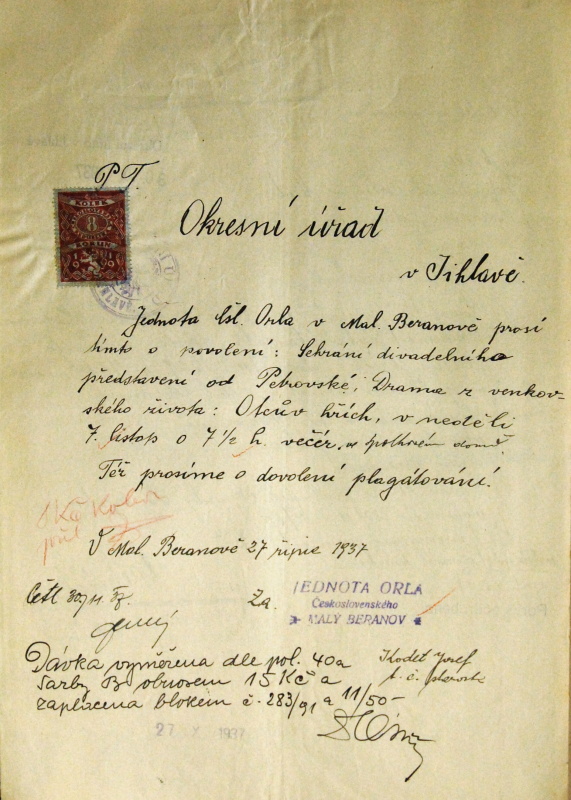 P. T.
KOLEK
8
KORUN
Okresní úřad
v Jihlavě.
Jednota čsl. Orla v Mal. Beranově prosí
tímto o povolení: Sehrání divadelního
představení od Petrovské; Drama z venkov-
ského života: Otcův hřích, v neděli
7. listop o 7 1/2 h. večer, v Spolkovém domě.
Též prosíme o dovolení plagátování.
8 Kč Kolek
V Mal. Beranově 27 říjne 1937
Za
JEDNOTA ORLA
Československého
MALÝ BERANOV
Kodet Josef
t. č. starosta
Dávka vyměřena dle pol. 40a
sazby B obnosem 15 Kč a
zaplacena blokem č. 283/91 a 11/50-
27 X 1937